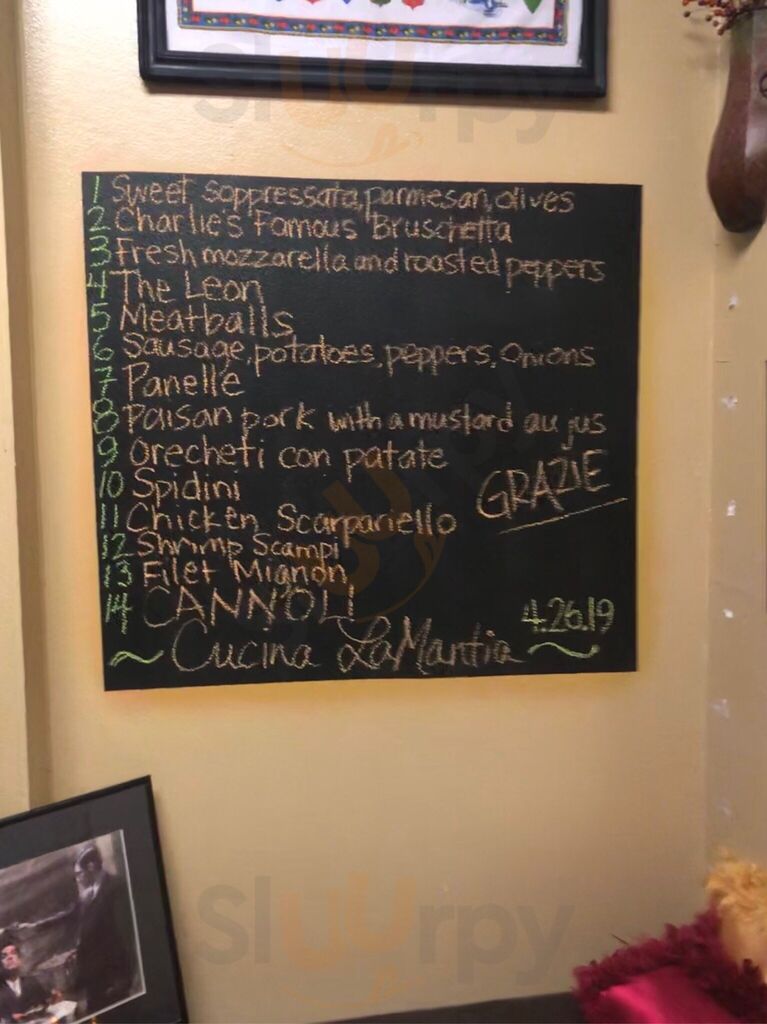 slUUrpy
1 Sweet soppressata, parmesan, olives
2 Charlie's Famous Bruschetta
3 Fresh mozzarella and roasted peppers
4 The Leon
5 Meatballs
6 Sausage, potatoes, peppers, onions
7 Panelle
8 Paisan pork with a mustard au jus
9 Orecheti con patate
10 Spidini
GRAZIE
11 Chicken Scarpariello
12 Shrimp Scampi
13 Filet Mignon
14 CANNOLI
4.26.19
~ Cucina LaMantia ~
slUUrpy